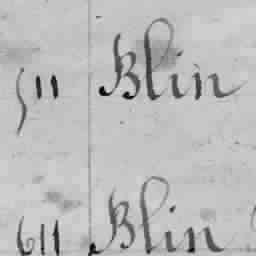 511 Blin
611 Blin